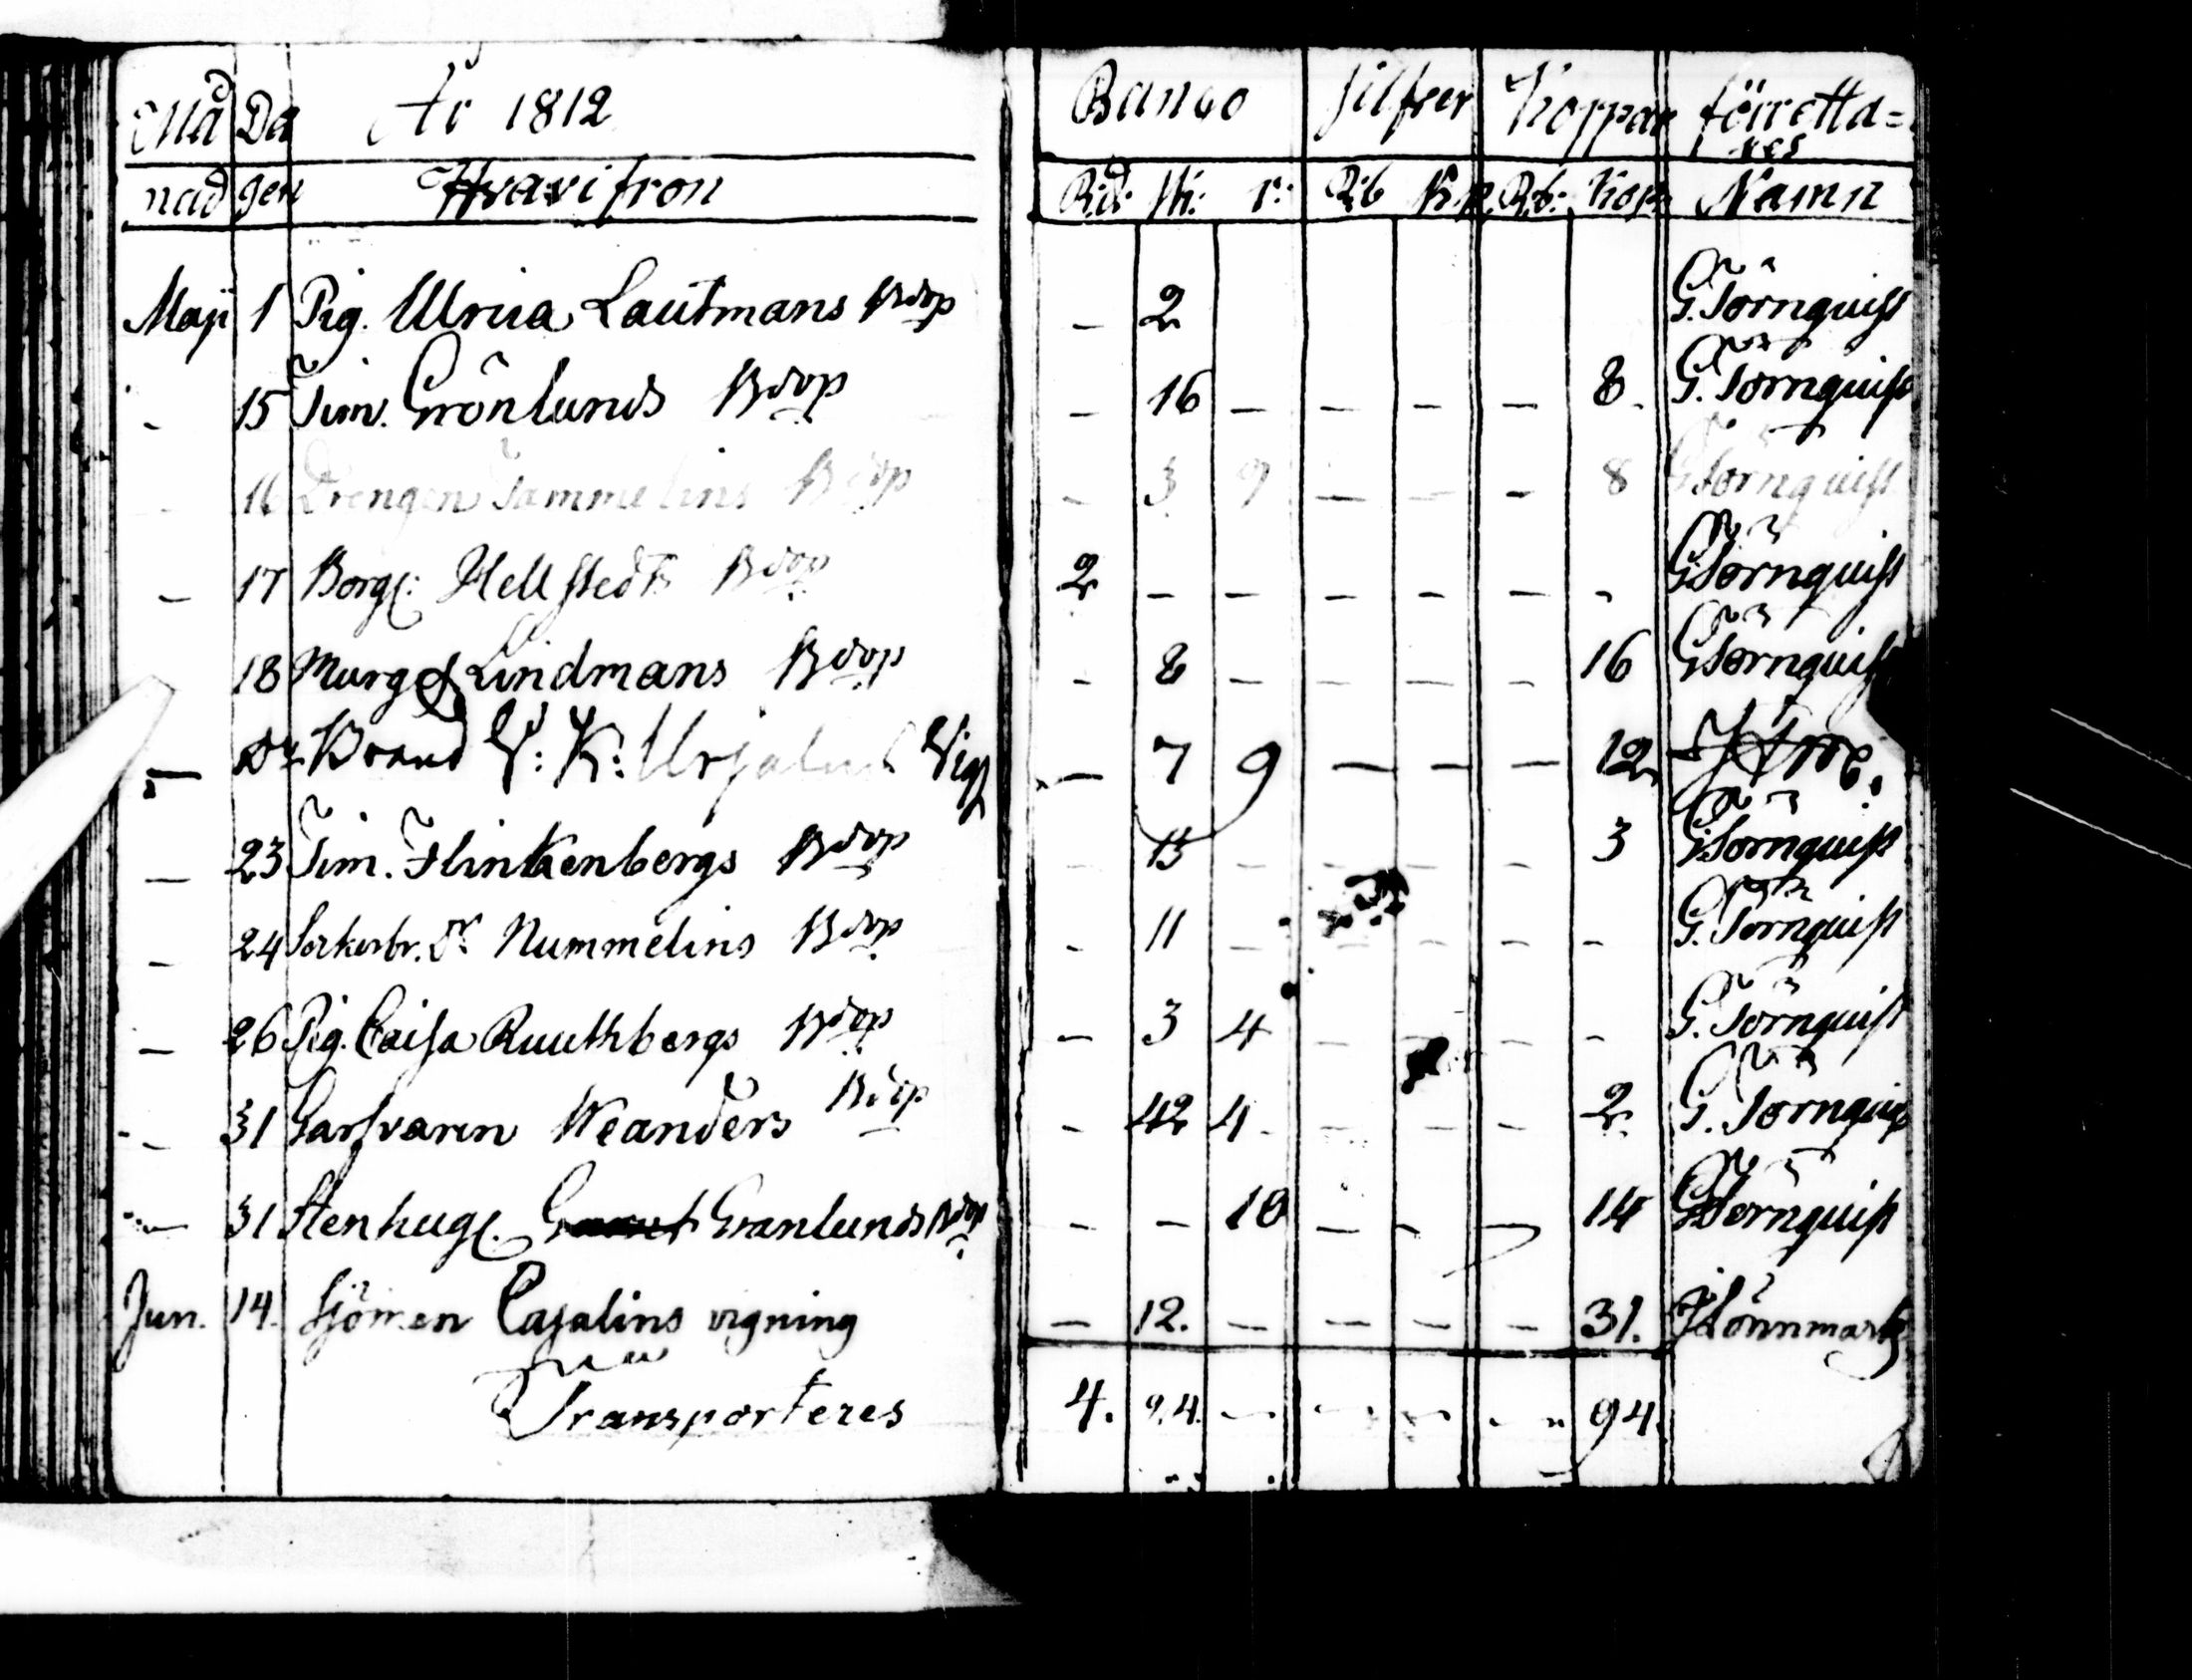 Må Da År 1812 Banco Silfver Koppar förretta=
res
nad gen Hvarifron R:d: sk: r: R:b K:p. R:b: Kop: Namn
Maji 1 Pig. Ulrica Lautmans Bdop - 2 G. Törnquist
- 15 Tim. Grönlunds Bdop - 16 - - - - 8. G. Törnquist
- 16 Drengen Tammelins Bdop - 3 9 - - - 8 G Törnquist
- 17 Borg: Hellstedts Bdop 2 - - - - - - G Törnquist
18 Murg Lindmans Bdop - 8 - - - - 16 G Törnquist
- Do Brand V: K: Vig - 7 9 - - - 12
- 23 Tim. Flinkenbergs Bdop - 15 - - - - 3 G Törnquist
- 24 Sockerbr. Nummelins Bdop - 11 - - - - - G. Törnquist
- 26 Pig. Caisa Ruuthbergs Bdop - 3 4 - - - - G. Törnquist
- 31 Garfvaren Weanders Bdop - 42 4 - - - 2 G. Törnquist
- 31 Stenhug. Granlunds Bdop - - 10 - - - 14 G Törnquist
Jun. 14. Sjömen Cajalins vigning - 12. - - - - 31. J Lönnmark
Transporteres 4. 24. - - - - 94.